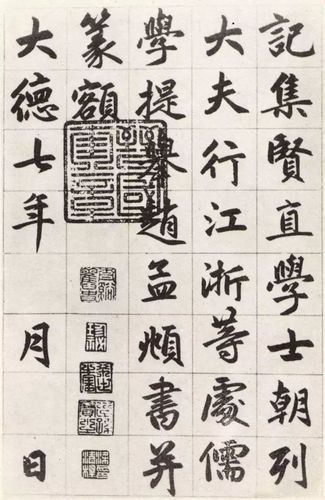 記集賢直學士朝列
大夫行江浙等處儒
學提舉趙孟頫書并
篆額
大德七年 月 日